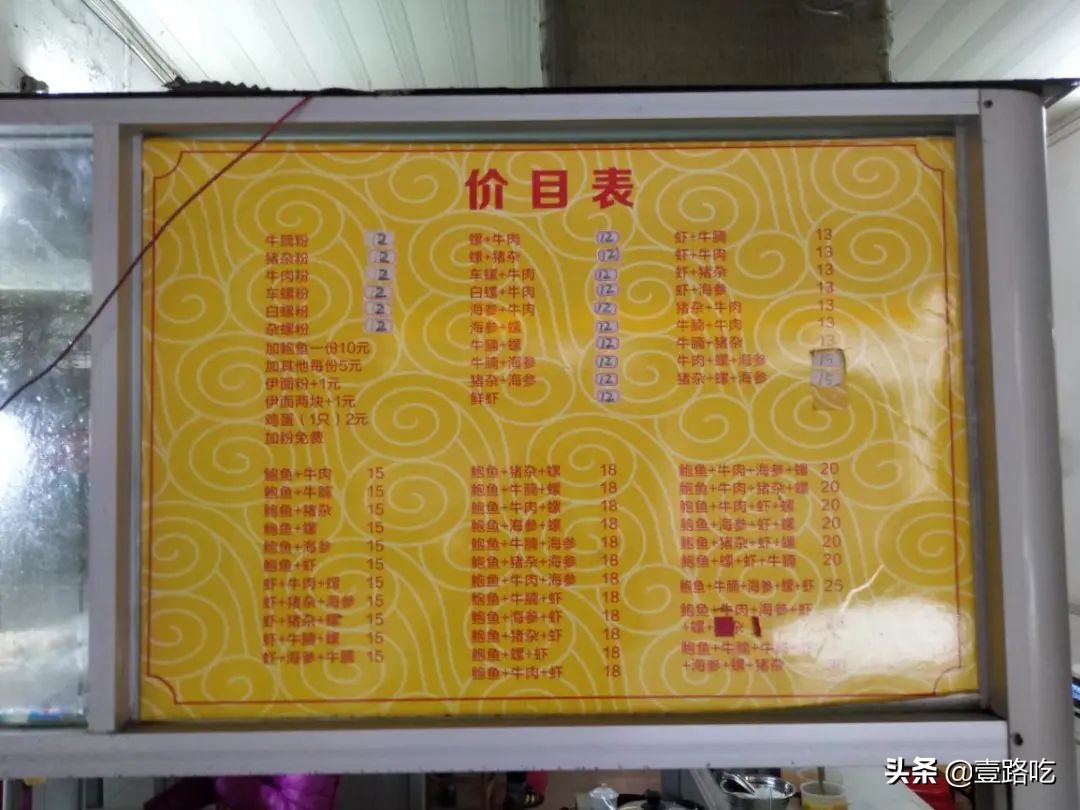 价目表
牛腩粉 12
猪杂粉 12
牛肉粉 12
车螺粉 12
白螺粉 12
杂螺粉 12
加鲍鱼一份10元
加其他每份5元
伊面粉+1元
伊面两块+1元
鸡蛋（1只）2元
加粉免费
螺+牛肉 12
螺+猪杂 12
车螺+牛肉 12
白螺+牛肉 12
海参+牛肉 12
海参+螺 12
牛腩+螺 12
牛腩+海参 12
猪杂+海参 12
鲜虾 12
虾+牛腩 13
虾+牛肉 13
虾+猪杂 13
虾+海参 13
猪杂+牛肉 13
牛腩+牛肉 13
牛腩+猪杂 13
牛肉+螺+海参 15
猪杂+螺+海参 15
鲍鱼+牛肉 15
鲍鱼+牛腩 15
鲍鱼+猪杂 15
鲍鱼+螺 15
鲍鱼+海参 15
鲍鱼+虾 15
虾+牛肉+螺 15
虾+猪杂+海参 15
虾+猪杂+螺 15
虾+牛腩+螺 15
虾+海参+牛腩 15
鲍鱼+猪杂+螺 18
鲍鱼+牛腩+螺 18
鲍鱼+牛肉+螺 18
鲍鱼+海参+螺 18
鲍鱼+牛腩+海参 18
鲍鱼+猪杂+海参 18
鲍鱼+牛肉+海参 18
鲍鱼+牛腩+虾 18
鲍鱼+海参+虾 18
鲍鱼+猪杂+虾 18
鲍鱼+螺+虾 18
鲍鱼+牛肉+虾 18
鲍鱼+牛肉+海参+螺 20
鲍鱼+牛肉+猪杂+螺 20
鲍鱼+牛肉+虾+螺 20
鲍鱼+海参+虾+螺 20
鲍鱼+猪杂+虾+螺 20
鲍鱼+螺+虾+牛腩 20
鲍鱼+牛腩+海参+螺+虾 25
鲍鱼+牛肉+海参+虾
+螺+杂
鲍鱼+牛腩+牛
+海参+螺+猪杂
头条 @壹路吃